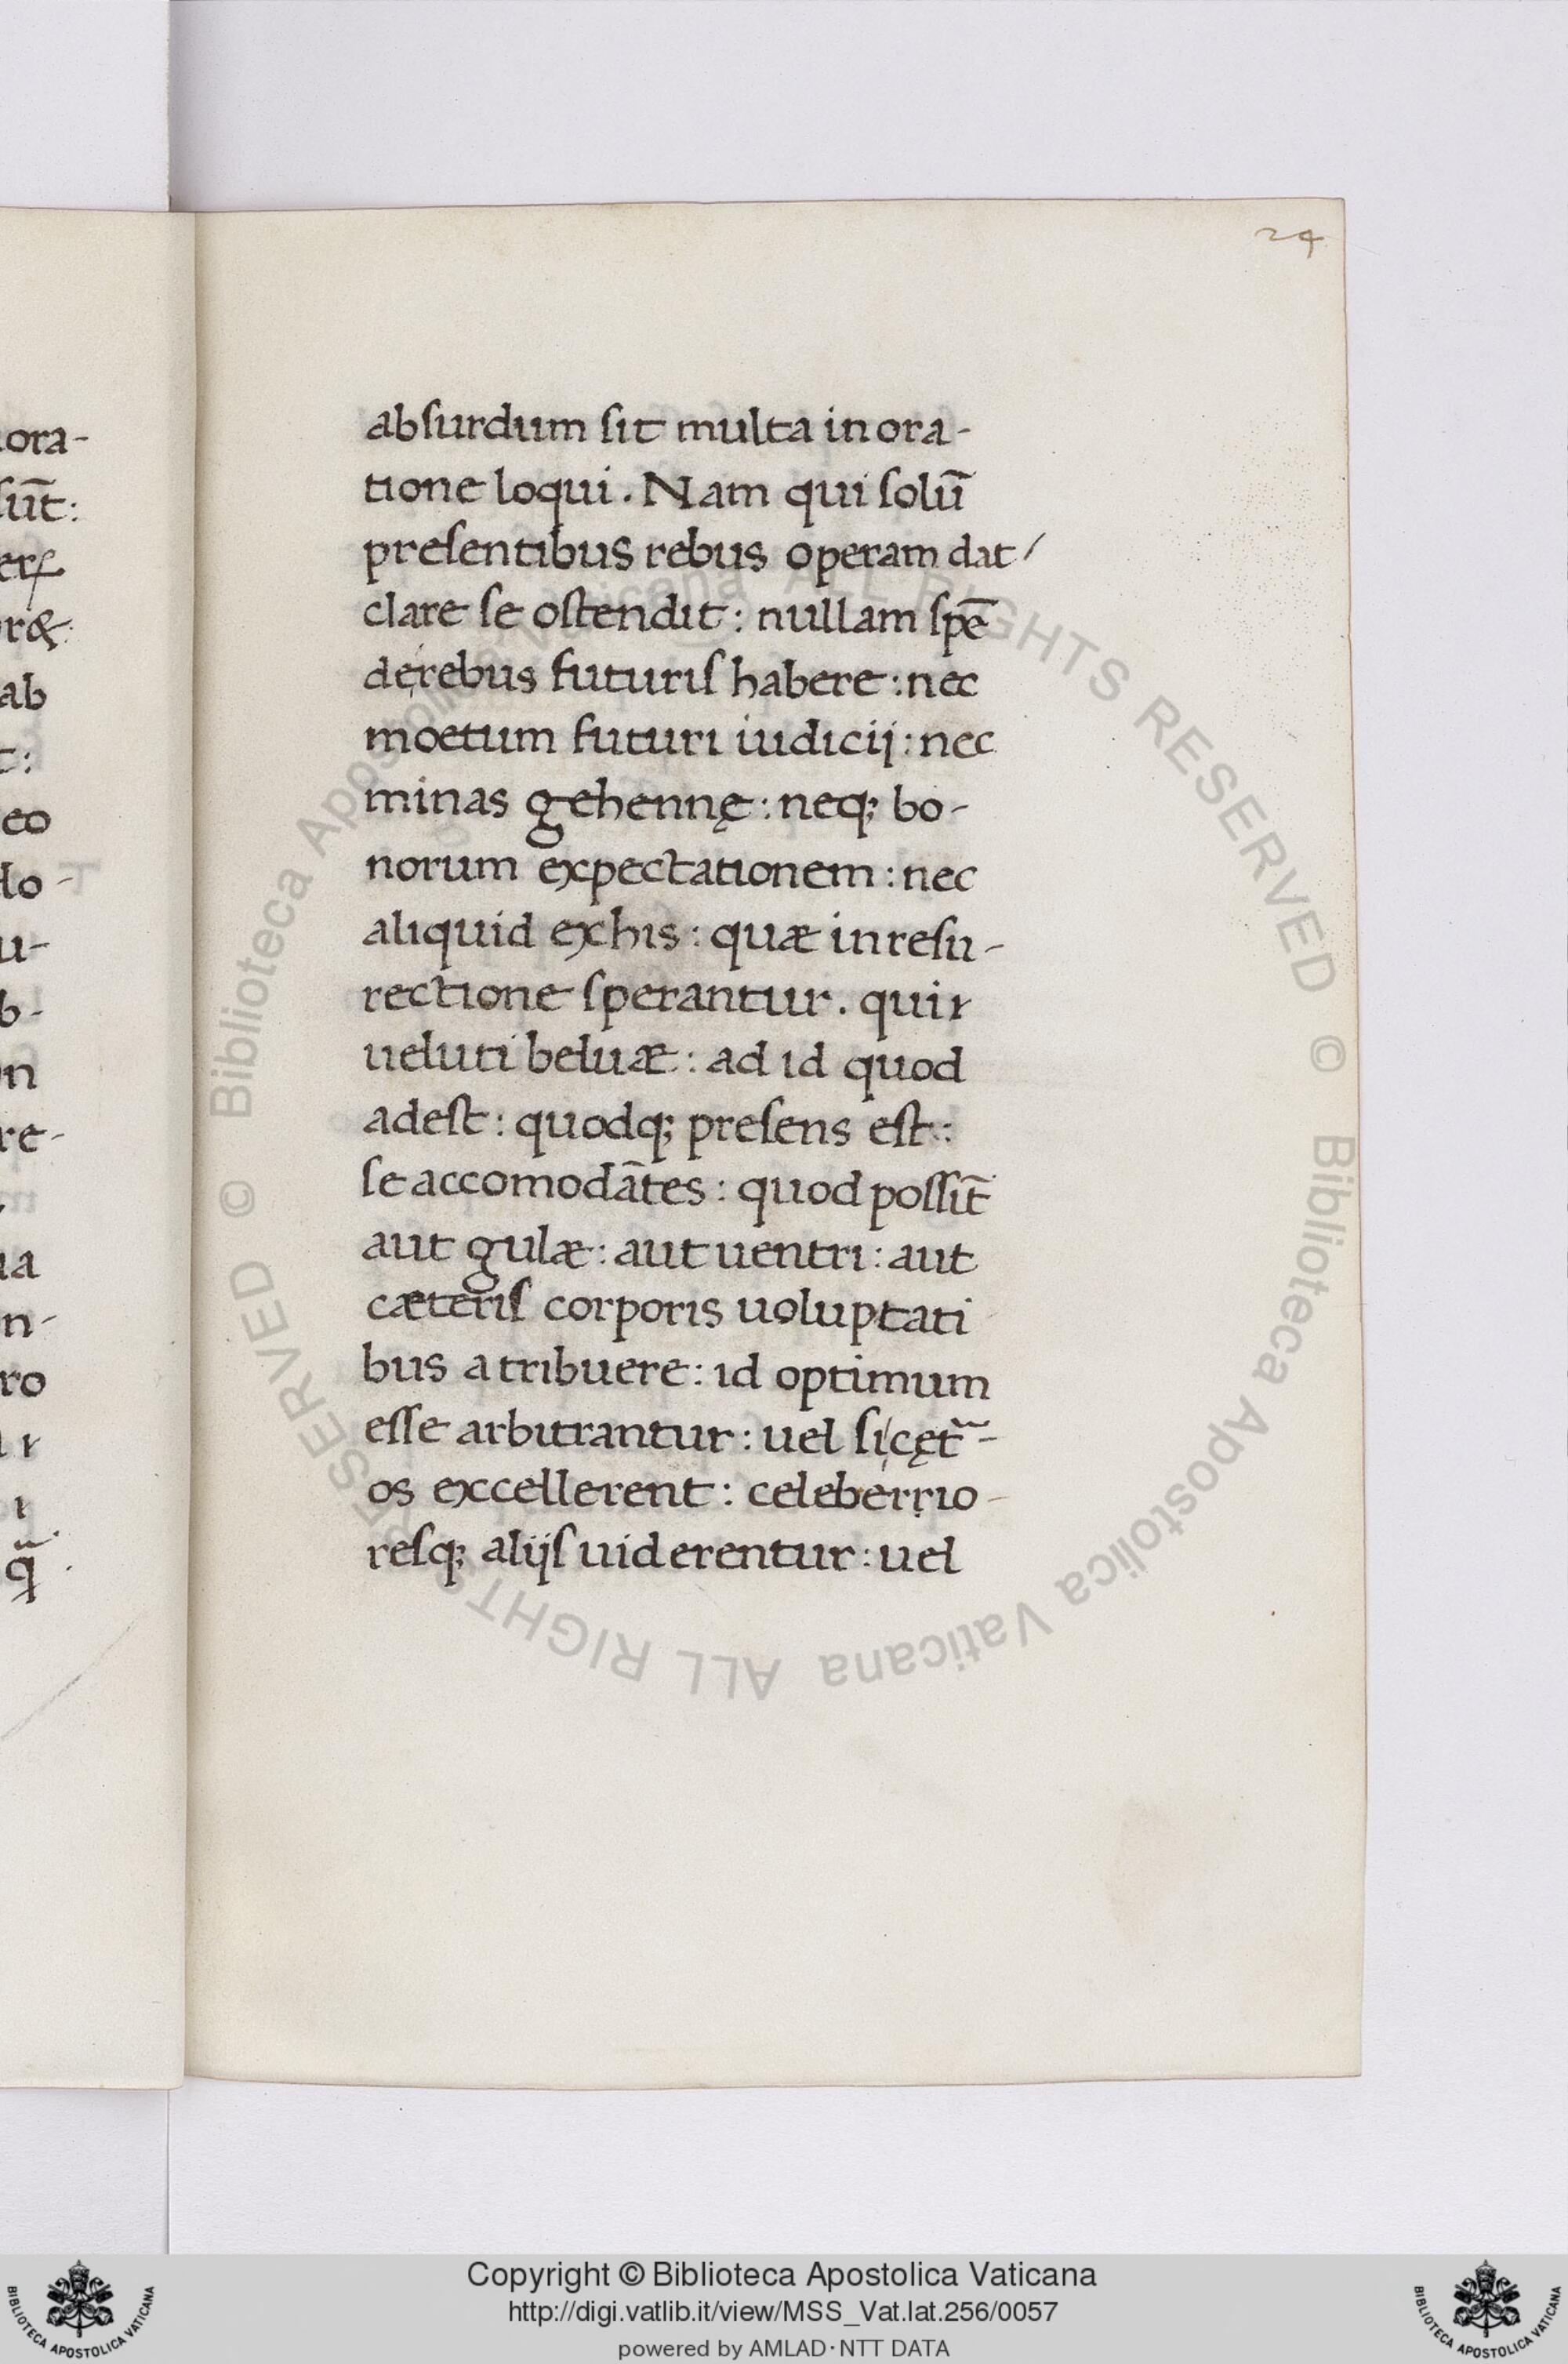 24
absurdum sit multa in ora-
tione loqui. Nam qui solū
presentibus rebus operam dat/
clare se ostendit: nullam spē
de rebus futuris habere: nec
moetum futuri iudicij: nec
minas gehennę: neq; bo-
norum expectationem: nec
aliquid ex his: quæ in resu-
rectione sperantur. qui
ueluti beluæ: ad id quod
adest: quodq; presens est:
se accomodātes: quod possīt
aut gulæ: aut uentri: aut
cæteris corporis uoluptati
bus atribuere: id optimum
esse arbitrantur: uel si
os exccellerent: celeberrio-
resq; alijs uiderentur: uel
ora-
sūt:
ab
eo
lo-
u-
b-
n
re-
n-
ro
Copyright © Biblioteca Apostolica Vaticana
http://digi.vatlib.it/view/MSS_Vat.lat.256/0057
powered by AMLAD·NTT DATA
© Biblioteca Apostolica Vaticana ALL RIGHTS RESERVED © Biblioteca Apostolica Vaticana ALL RIGHTS RESERVED
BIBLIOTECA APOSTOLICA VATICANA
BIBLIOTECA APOSTOLICA VATICANA